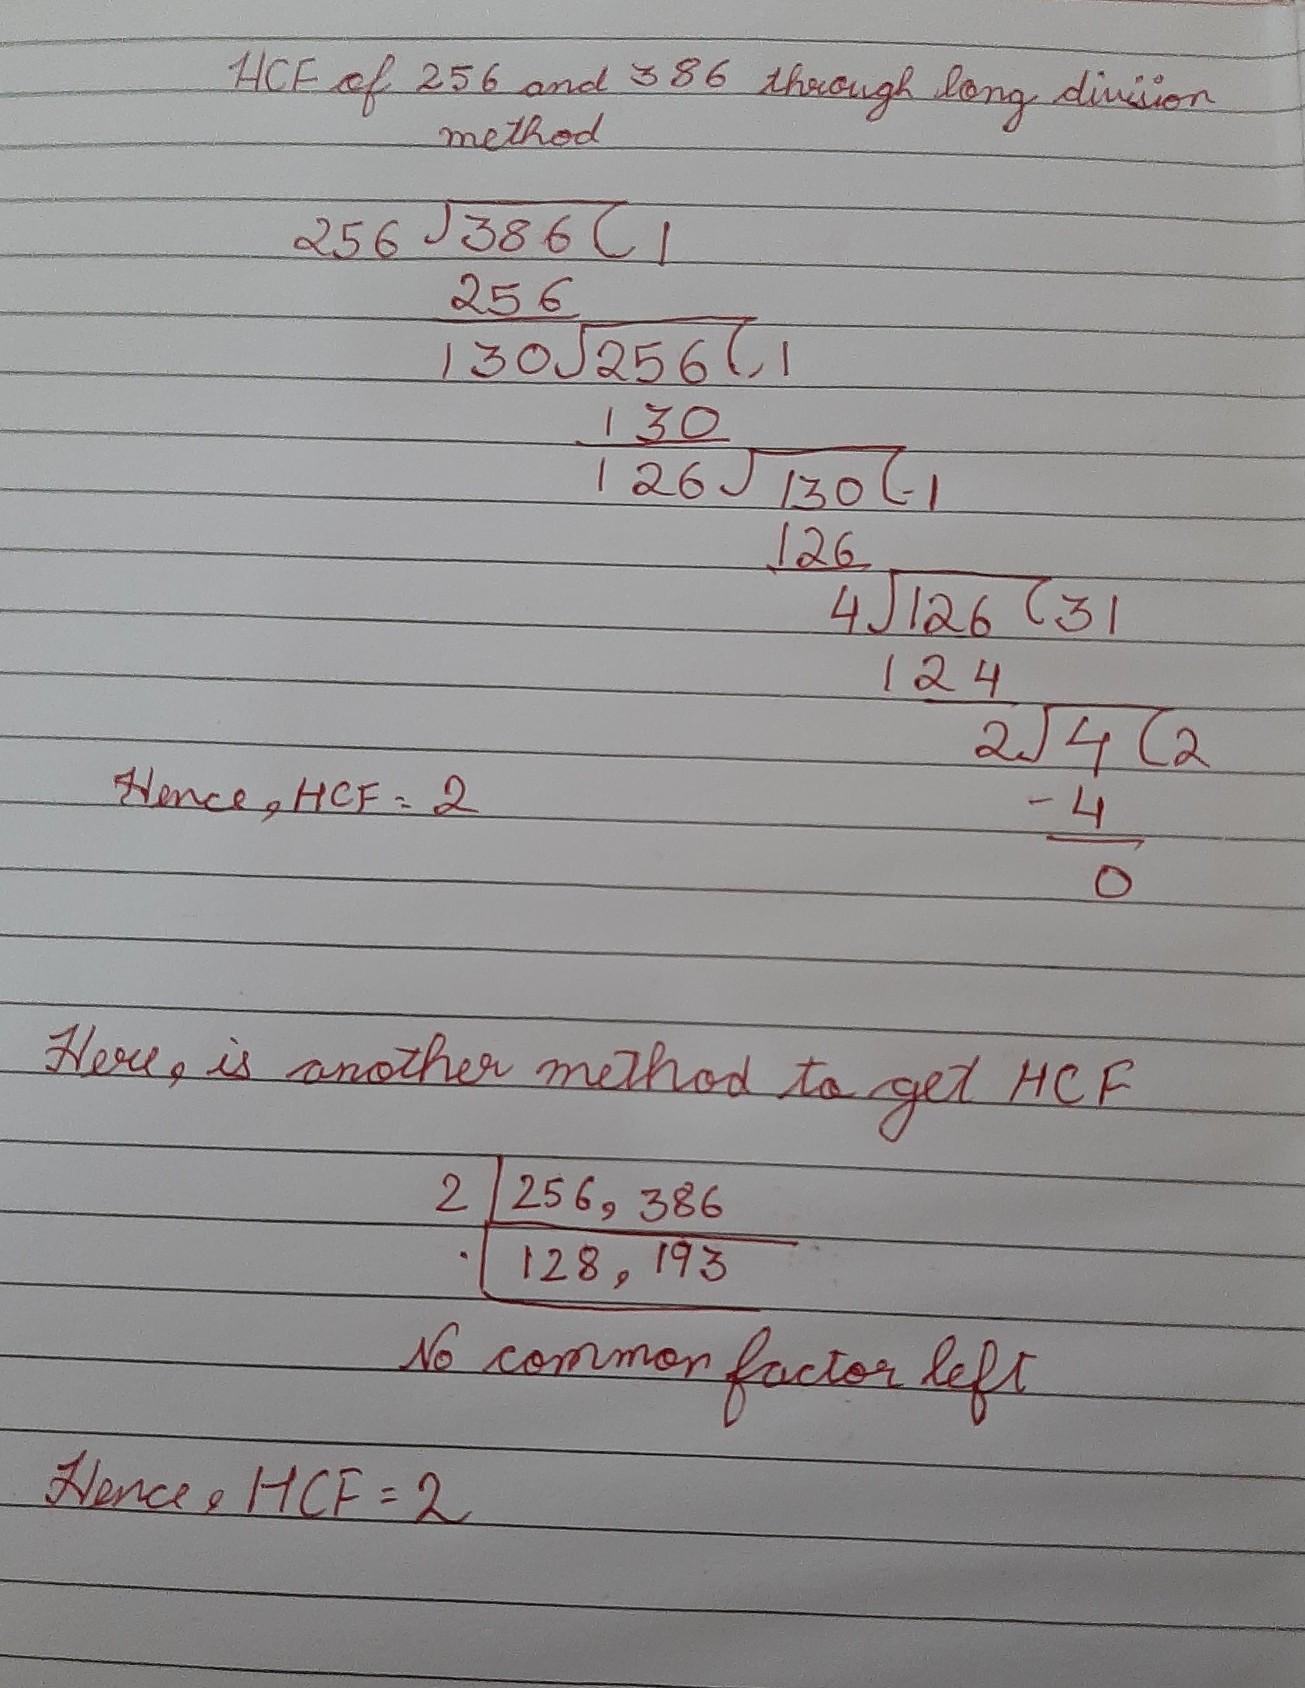 HCF of 256 and 386 through long division
method
256 √386 ( 1
256
130√256 ( 1
130
126√130 ( 1
126
4√126 ( 31
124
2√4 ( 2
Hence, HCF = 2
-4
0
Here, is another method to get HCF
2 | 256, 386
. | 128, 193
No common factor left
Hence, HCF = 2